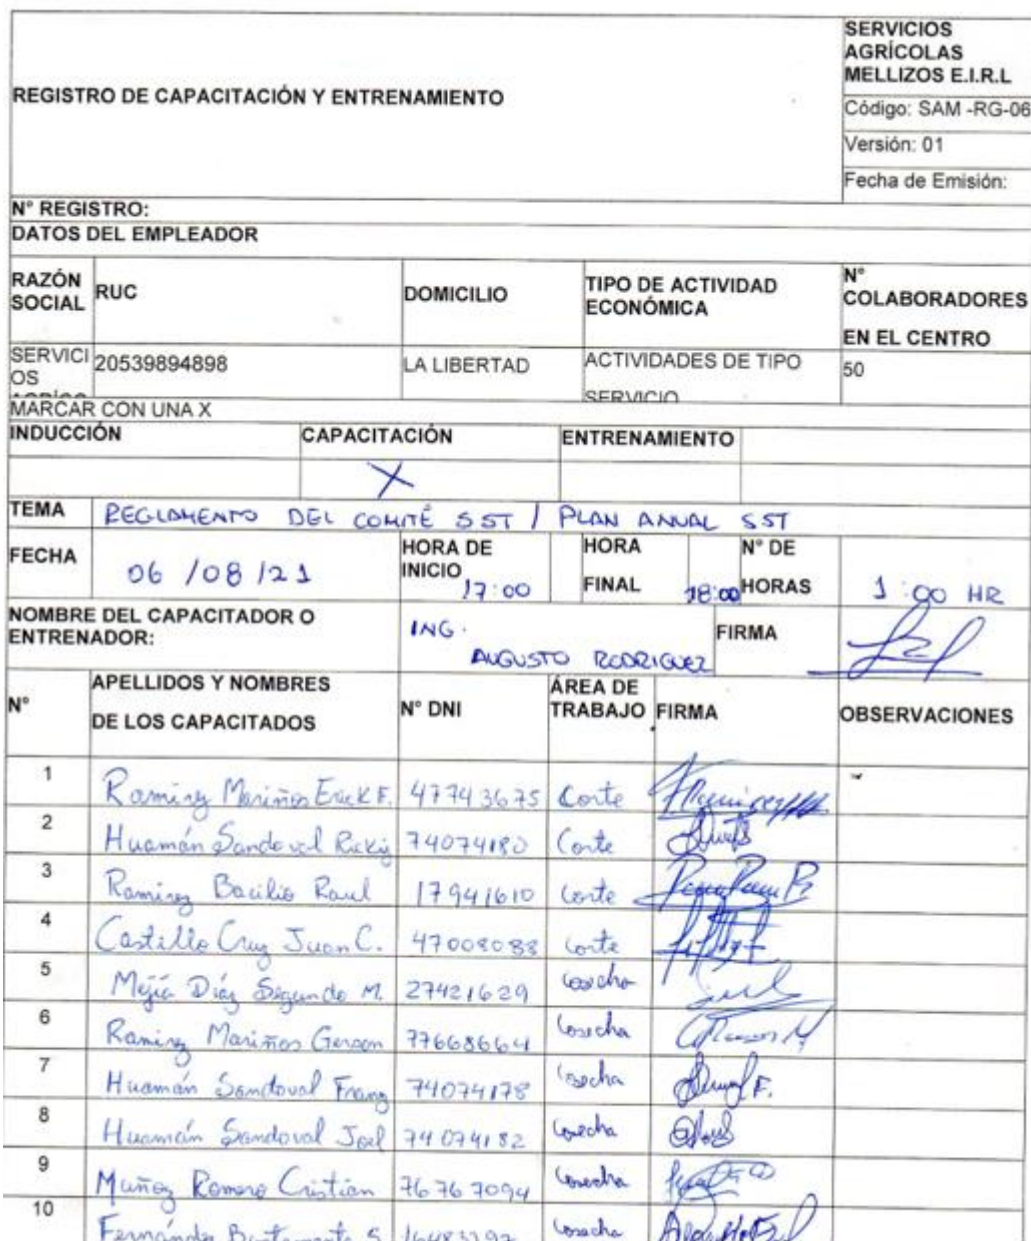 REGISTRO DE CAPACITACIÓN Y ENTRENAMIENTO
SERVICIOS
AGRÍCOLAS
MELLIZOS E.I.R.L
Código: SAM -RG-06
Versión: 01
Fecha de Emisión:
N° REGISTRO:
DATOS DEL EMPLEADOR
RAZÓN SOCIAL RUC DOMICILIO TIPO DE ACTIVIDAD ECONÓMICA N° COLABORADORES EN EL CENTRO
SERVICIOS 20539894898 LA LIBERTAD ACTIVIDADES DE TIPO SERVICIO 50
MARCAR CON UNA X
INDUCCIÓN CAPACITACIÓN ENTRENAMIENTO
X
TEMA REGLAMENTO DEL COMITÉ SST / PLAN ANUAL SST
FECHA 06/08/21 HORA DE INICIO 17:00 HORA FINAL 18:00 N° DE HORAS 1:00 HR
NOMBRE DEL CAPACITADOR O ENTRENADOR: ING. AUGUSTO RODRIGUEZ FIRMA
N° APELLIDOS Y NOMBRES DE LOS CAPACITADOS N° DNI ÁREA DE TRABAJO FIRMA OBSERVACIONES
1 Ramirez Mariños Erick F. 47743675 Corte
2 Huamán Sandoval 74074180 Corte
3 Ramirez Bacilio Raul 17941610 Corte
4 Castillo Cruz Juan C. 47008088 Corte
5 Mejía Díaz Segundo M. 27421629 Cosecha
6 Ramirez Mariños Gerson 77668664 Cosecha
7 Huamán Sandoval Franz 74074178 Cosecha
8 Huamán Sandoval Joel 74074182 Cosecha
9 Muñoz Romero Cristian 76767094 Cosecha
10 Fernández Bustamante S. Cosecha